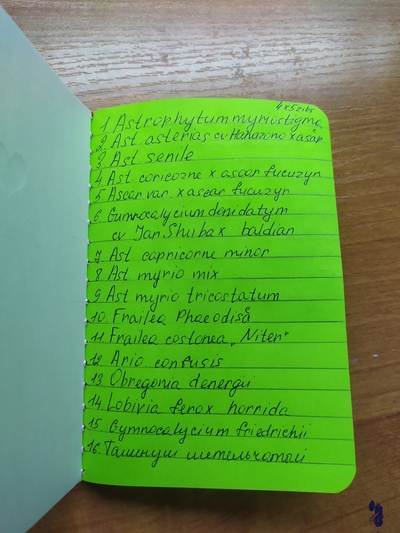 4x5zibs
1 Astrophytum myriostigma
2 Ast. asterias cv Hanazono x asar
3 Ast senile
4 Ast coricozne x ascar fucuzyn
5 Ascar var. x ascar fucuzyn
6 Gumnocalycium denidatym
cv Jan Shuba x baldian
7 Ast. capricorne minor
8 Ast myrio mix
9 Ast myrio tricostatum
10. Frailea Phaeodisa
11 Frailea costanea „Niten"
12 Ario confusis
13 Obregonia denergii
14 Lobivia ferox horrida
15 Gymnocalycium friedrichii
16. Талинум метельчатый